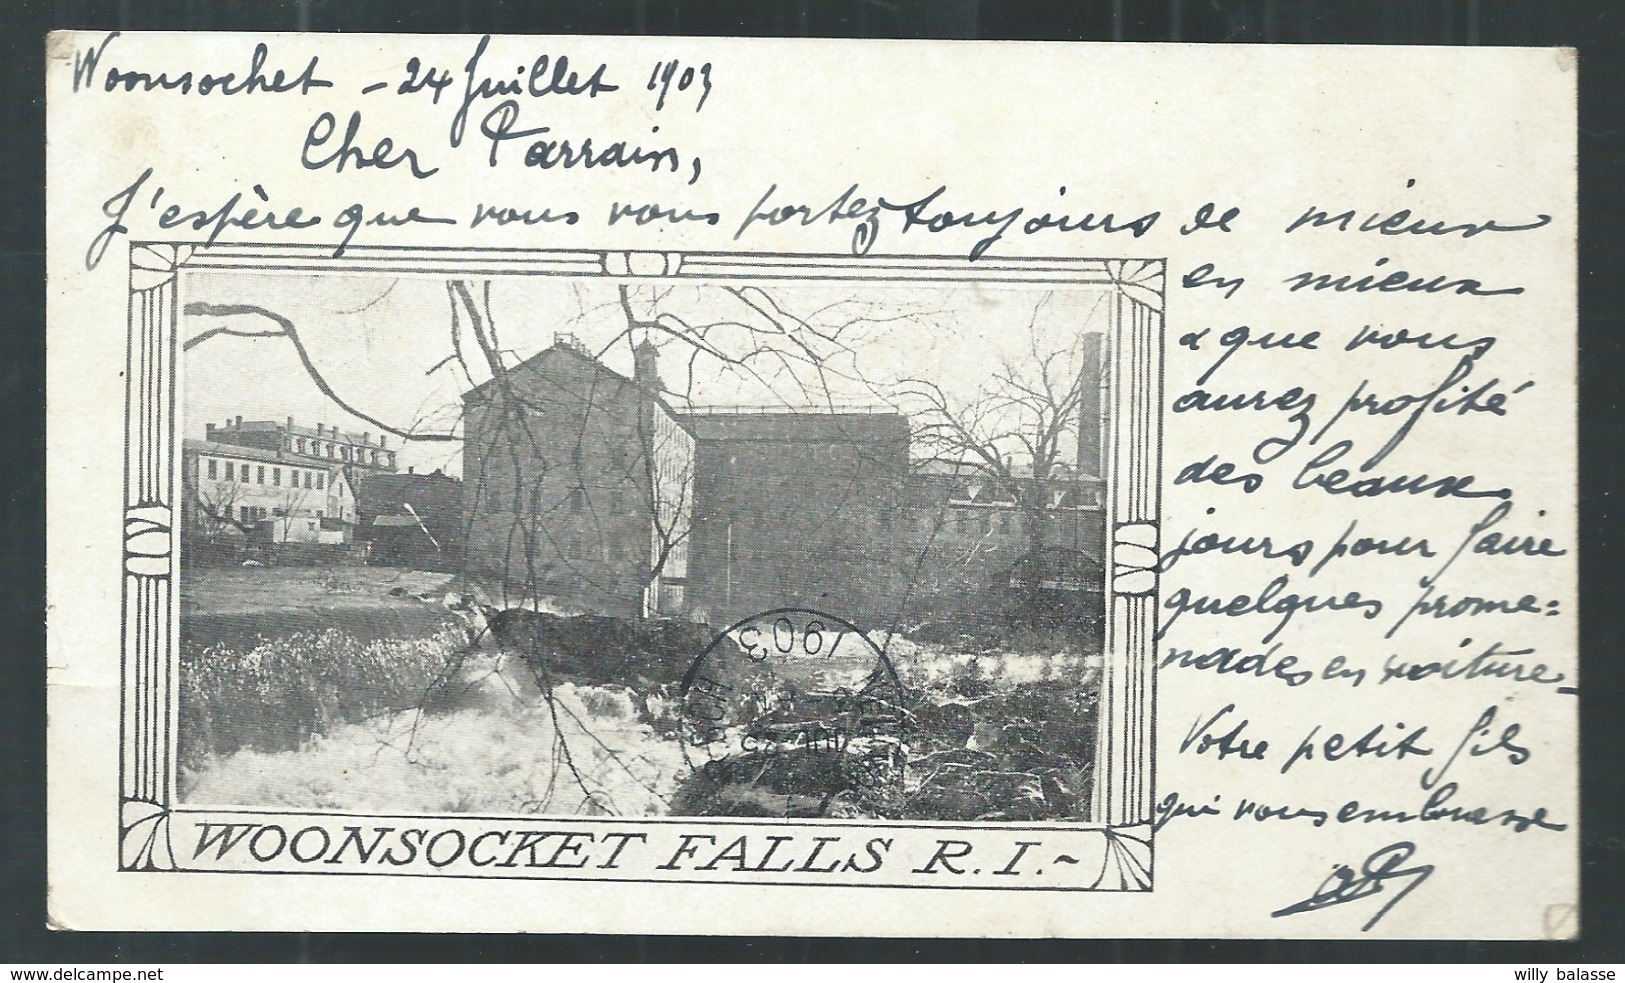 Woonsocket - 24 Juillet 1903
Cher Parrain,
J'espère que vous vous portez toujours de mieux
en mieux
& que vous
aurez profité
des beaux
jours pour faire
quelques prome=
nades en voiture -
Votre petit fils
qui vous embrasse
1903
WOONSOCKET FALLS R.I.~
willy balasse